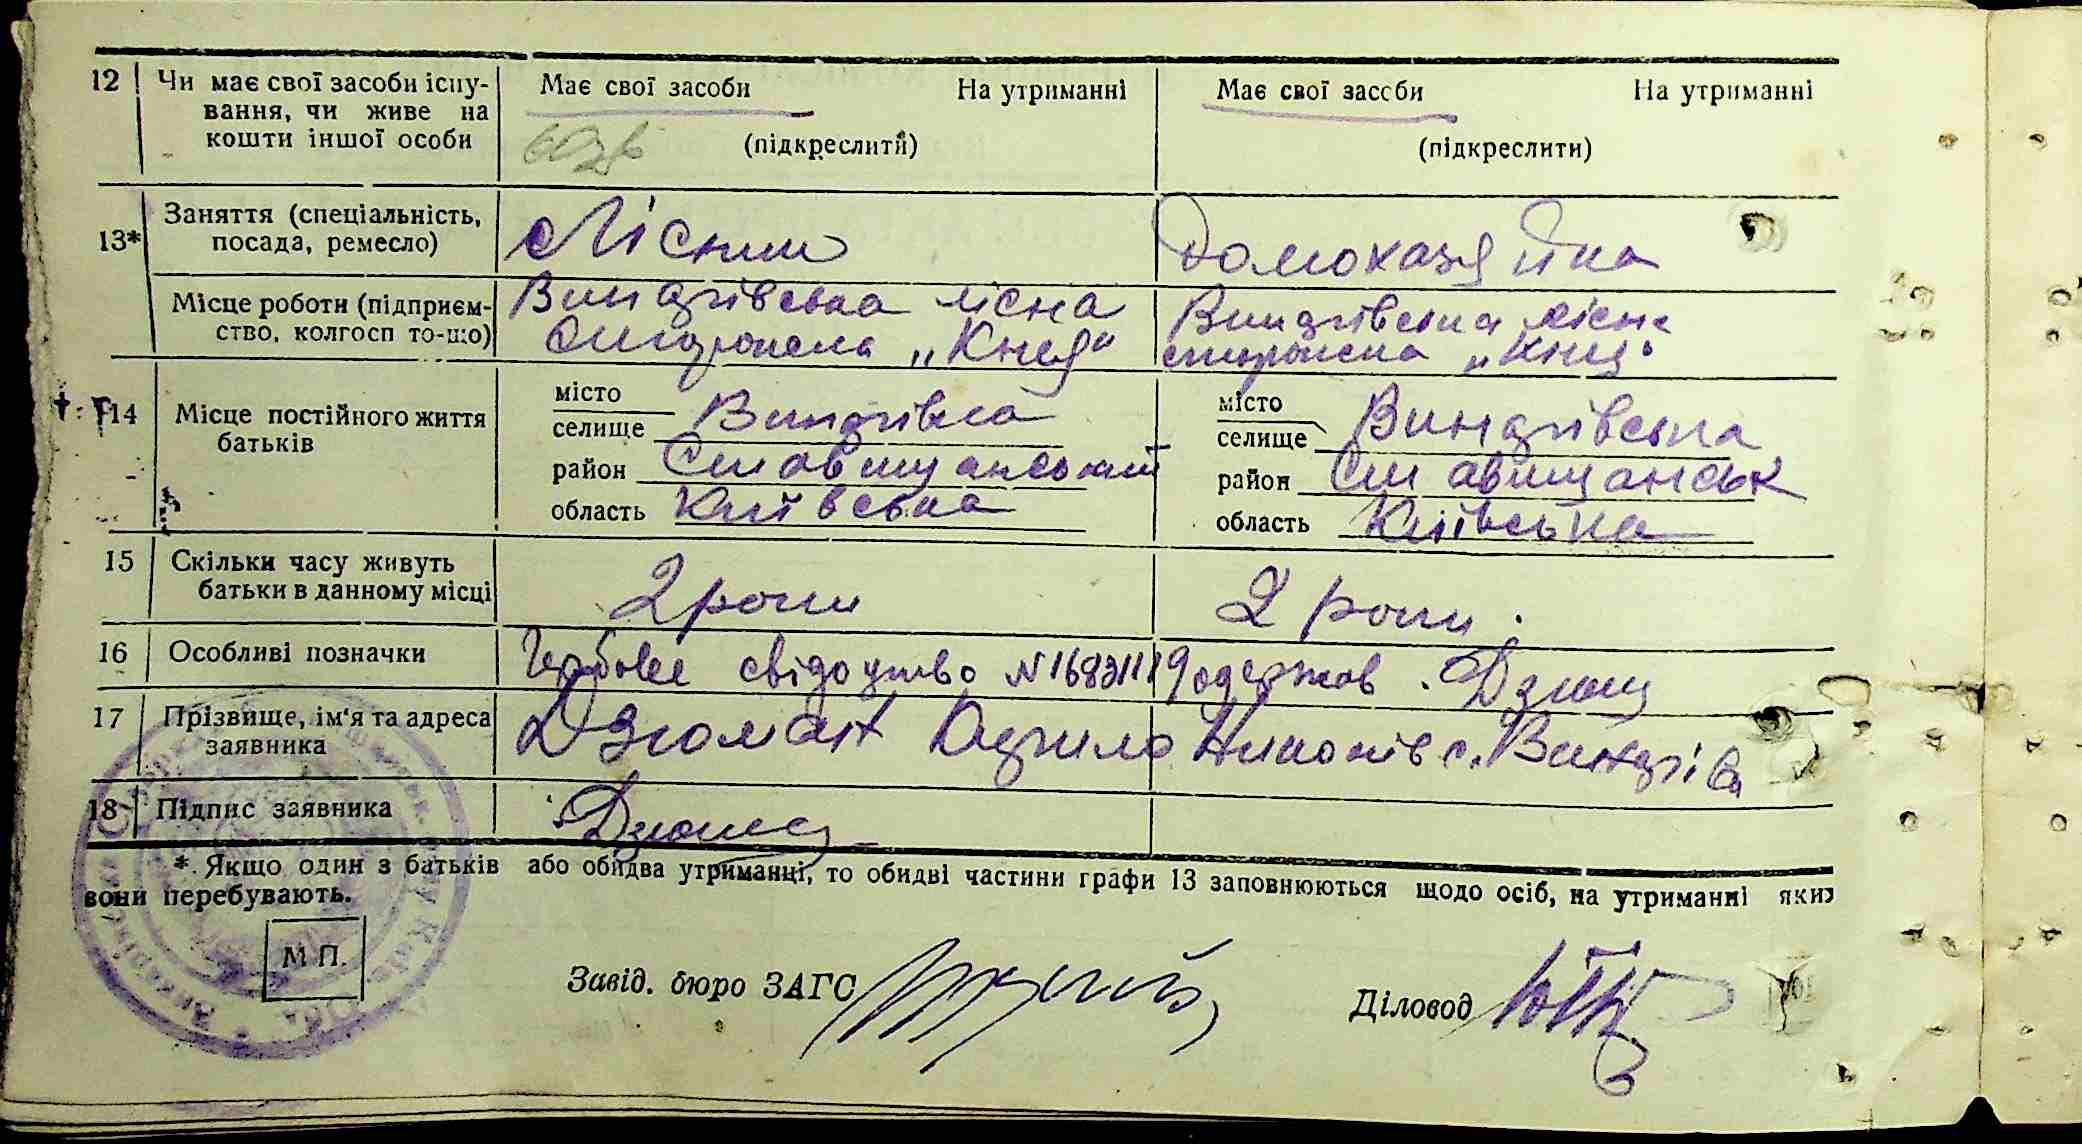 12 Чи має свої засоби існу- Має свої засоби На утриманні Має свої засоби На утриманні
вання, чи живе на
кошти іншої особи (підкреслити) (підкреслити)
13* Заняття (спеціальність,
посада, ремесло) Лісник Домохазяйка
Місце роботи (підприєм- Винарівська лісна Винарівська лісна
ство, колгосп то-що) сторожка „Кнея“ сторожка „Кнея“
14 Місце постійного життя
батьків
місто місто
селище Винарівка селище Винарівська
район Ставищанський район Ставищанськ
область Київська область Київська
15 Скільки часу живуть
батьки в данному місці 2 роки 2 роки.
16 Особливі позначки свідоцтво № одержав
17 Прізвище, ім‘я та адреса
заявника Дзюман с. Винарівка
18 Підпис заявника
* Якщо один з батьків або обидва утриманці, то обидві частини графи 13 заповнюються щодо осіб, на утриманні яких
вони перебувають.
М П.
Завід. бюро ЗАГС
Діловод